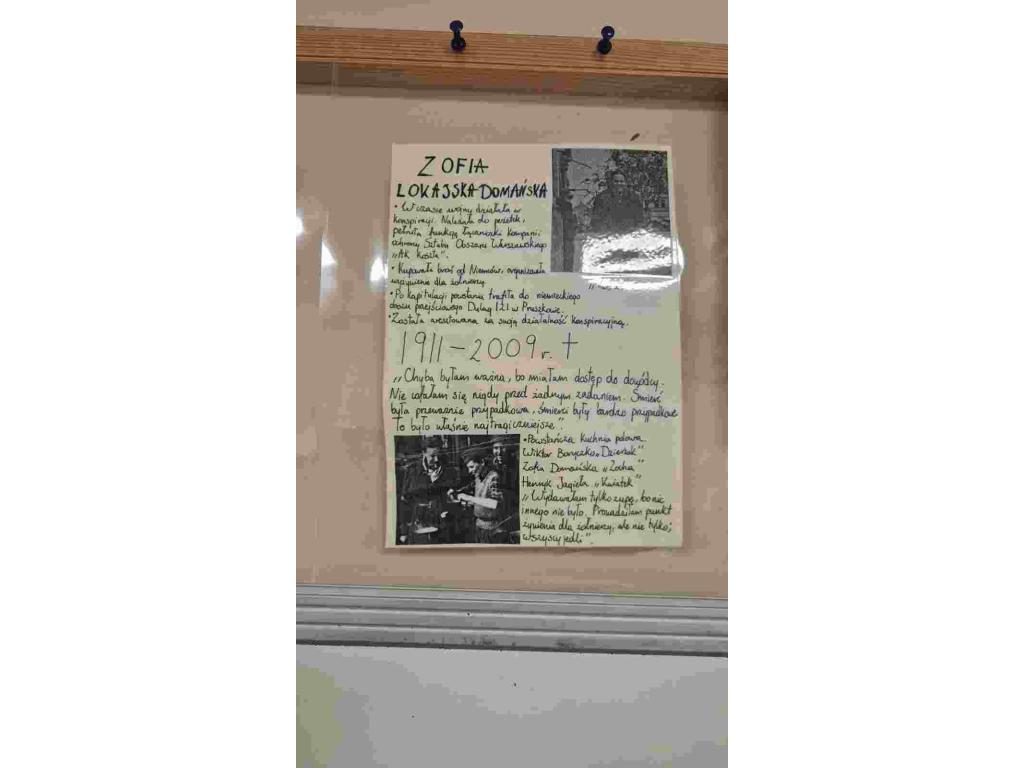 ZOFIA
LOKAJSKA-DOMAŃSKA
• W czasie wojny działała w
konspiracji. Należała do
pełniła funkcję łączniczki Kompanii
ochrony Sztabu Obszaru Warszawskiego
„AK Koszta".
• Kupowała broń od Niemców, organizowała
wyżywienie dla żołnierzy.
• Po kapitulacji powstania trafiła do niemieckiego
obozu przejściowego Dulag 121 w Pruszkowie.
• Została aresztowana za swoją działalność konspiracyjną.
1911-2009r. †
„Chyba byłam ważna, bo miałam dostęp do dowódcy.
Nie cofałam się nigdy przed żadnym zadaniem. Śmierć
była przeważnie przypadkowa, śmierci były bardzo przypadkowe
To było właśnie najtragiczniejsze".
• Powstańcza kuchnia polowa
Wiktor Boryczko „Dzierżak"
Zofia Domańska „Zocha"
Henryk Jagiełła „Kwiatek"
„Wydawałam tylko zupę, bo nic
innego nie było. Prowadziłam punkt
żywienia dla żołnierzy, ale nie tylko;
wszyscy jedli".